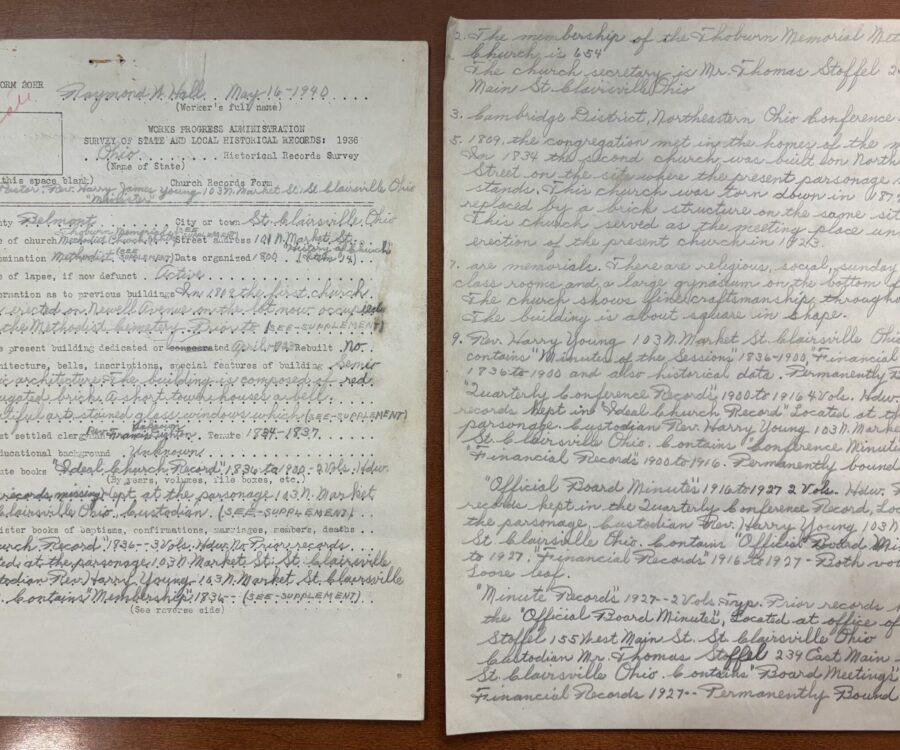 FORM 20HR
Raymond W. Hall May-16-1940
(Worker's full name)
WORKS PROGRESS ADMINISTRATION
SURVEY OF STATE AND LOCAL HISTORICAL RECORDS: 1936
Ohio Historical Records Survey
(Name of State)
this space blank) Church Records Form
Rev. Harry James Young 103 N. Market St. St. Clairsville Ohio
"Minister"
Belmont City or town St. Clairsville Ohio
Thoburn Memorial (SEE SUPPLEMENT)
of church Methodist Church Street address 101 N. Market St.
Methodist (SEE SUPPLEMENT) Date organized 1800
of lapse, if now defunct Active
formation as to previous buildings In 1809 the first church
erected on Newell Avenue on the lot now occupied
the Methodist Cemetery. Prior to (SEE-SUPPLEMENT)
present building dedicated or consecrated April-1923 Rebuilt No
chitecture, bells, inscriptions, special features of building Semi
architecture. The building is composed of red
brick. A short tower houses a bell.
art stained glass windows which (SEE-SUPPLEMENT)
st settled clergyman Tenure 1834-1837
ducational background Unknown
ute books "Ideal Church Record" 1836 to 1900-2 Vols. Hdw.
(By years, volumes, file boxes, etc.)
records missing) Kept at the parsonage 103 N. Market
Clairsville Ohio. Custodian (SEE-SUPPLEMENT)
ister books of baptisms, confirmations, marriages, members, deaths
urch Record" 1836--3 Vols. Hdw. No Prior records
ted at the parsonage 103 N. Market St. St. Clairsville
stodian Rev. Harry Young 103 N. Market St. Clairsville
Contains "Membership" 1836-- (SEE-SUPPLEMENT)
(See reverse side)
2. The membership of the Thoburn Memorial Met
Church is 654
The church secretary is Mr. Thomas Stoffel 2
Main St. Clairsville Ohio
3. Cambridge District, Northeastern Ohio Conference
5. 1809, the congregation met in the homes of the m
In 1834 the second church was built on North
Street on the site where the present parsonage n
stands. This church was torn down in 187
replaced by a brick structure on the same sit
This church served as the meeting place un
erection of the present church in 1923.
7. are memorials. There are religious, social, sunday
class rooms and a large gynasium on the bottom f
The church shows fine craftsmanship througho
The building is about square in shape.
9. Rev. Harry Young 103 N. Market St. Clairsville Ohi
contains "Minutes of the Sessions" 1836-1900, "Financial
1836 to 1900 and also historical data. Permanently B
"Quarterly Conference Records" 1900 to 1916 4 Vols. Hdw.
records kept in "Ideal Church Record" Located at th
parsonage. Custodian Rev. Harry Young 103 N. Market
St. Clairsville Ohio. Contains "Conference Minute
"Financial Records" 1900 to 1916. Permanently bound
"Official Board Minutes" 1916 to 1927 2 Vols. Hdw. P
records kept in the Quarterly Conference Record, Loc
the parsonage, Custodian Rev. Harry Young 103 N
St. Clairsville Ohio. Contains "Official Board Min
to 1927. "Financial Records" 1916 to 1927 - Both vo
Loose leaf.
"Minute Records" 1927--2 Vols. Typ. Prior records
the "Official Board Minutes", Located at office of
Stoffel 155 West Main St. St. Clairsville Ohio
Custodian Mr. Thomas Stoffel 239 East Main
St. Clairsville Ohio. Contains "Board Meetings
Financial Records 1927-- Permanently Bound